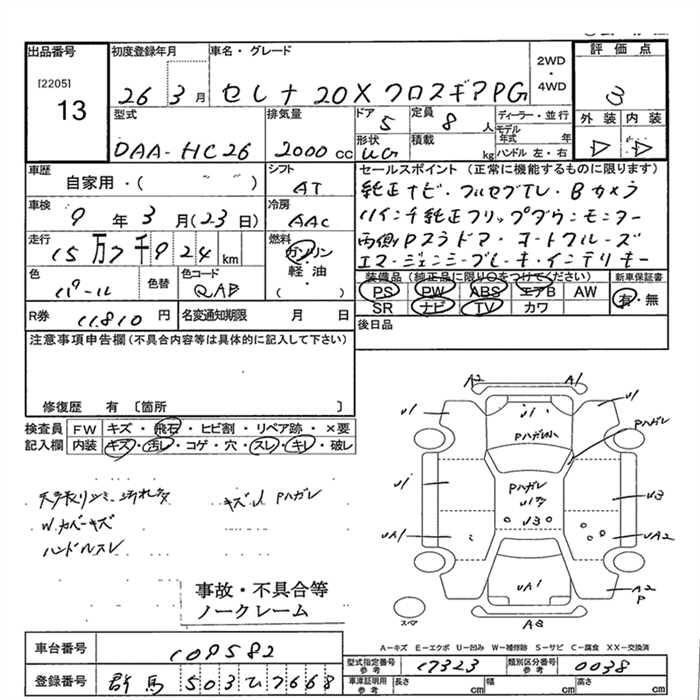 出品番号
[2205]
13
初度登録年月
26 3月
車名・グレード
セレナ 20X クロスギア PG
2WD
・
4WD
評価点
3
外装 内装
型式
DAA-HC26
排気量
2000 cc
ドア
5
定員
8 人
形状
UG
積載
kg
ディーラー・並行
モデル年式 年
ハンドル 左・右
車歴
自家用・( )
シフト
AT
車検
9年3月(23日)
冷房
AAC
走行
15万7千924 km
燃料
ガソリン
軽・油
( )
色
パール
色替
色コード
QAB
R券
11810 円
名変通知期限 月 日
セールスポイント(正常に機能するものに限ります)
純正ナビ・フルセグTV・Bカメラ
11インチ純正フリップダウンモニター
両側Pスラドア・オートクルーズ
エマージェンシーブレーキ・インテリキー
装備品(純正品に限り○をつけてください)
PS PW ABS エアB AW
SR ナビ TV カワ
新車保証書
有・無
後日品
注意事項申告欄(不具合内容等は具体的に記入して下さい)
修復歴 有 〔箇所 〕
検査員
記入欄
FW キズ・飛石・ヒビ割・リペア跡・×要
内装 キズ・汚レ・コゲ・穴・スレ・キレ・破レ
天張りシミ・汚れ大
キズU Pハガレ
W.カバーキズ
ハンドルスレ
事故・不具合等
ノークレーム
A2 A1
U1 U1 U1
Pハガレ
U1 Pハガレ U3
U3
UA1 UA2
UA1
A2
P
A3
スペア
A-キズ E-エクボ U-凹み W-補修跡 S-サビ C-腐食 XX-交換済
車台番号
109582
登録番号
群馬 503ひ7668
型式指定番号
参考
17323
類別区分番号
参考
0038
車庫証明用
参考
長さ cm 幅 cm 高さ cm